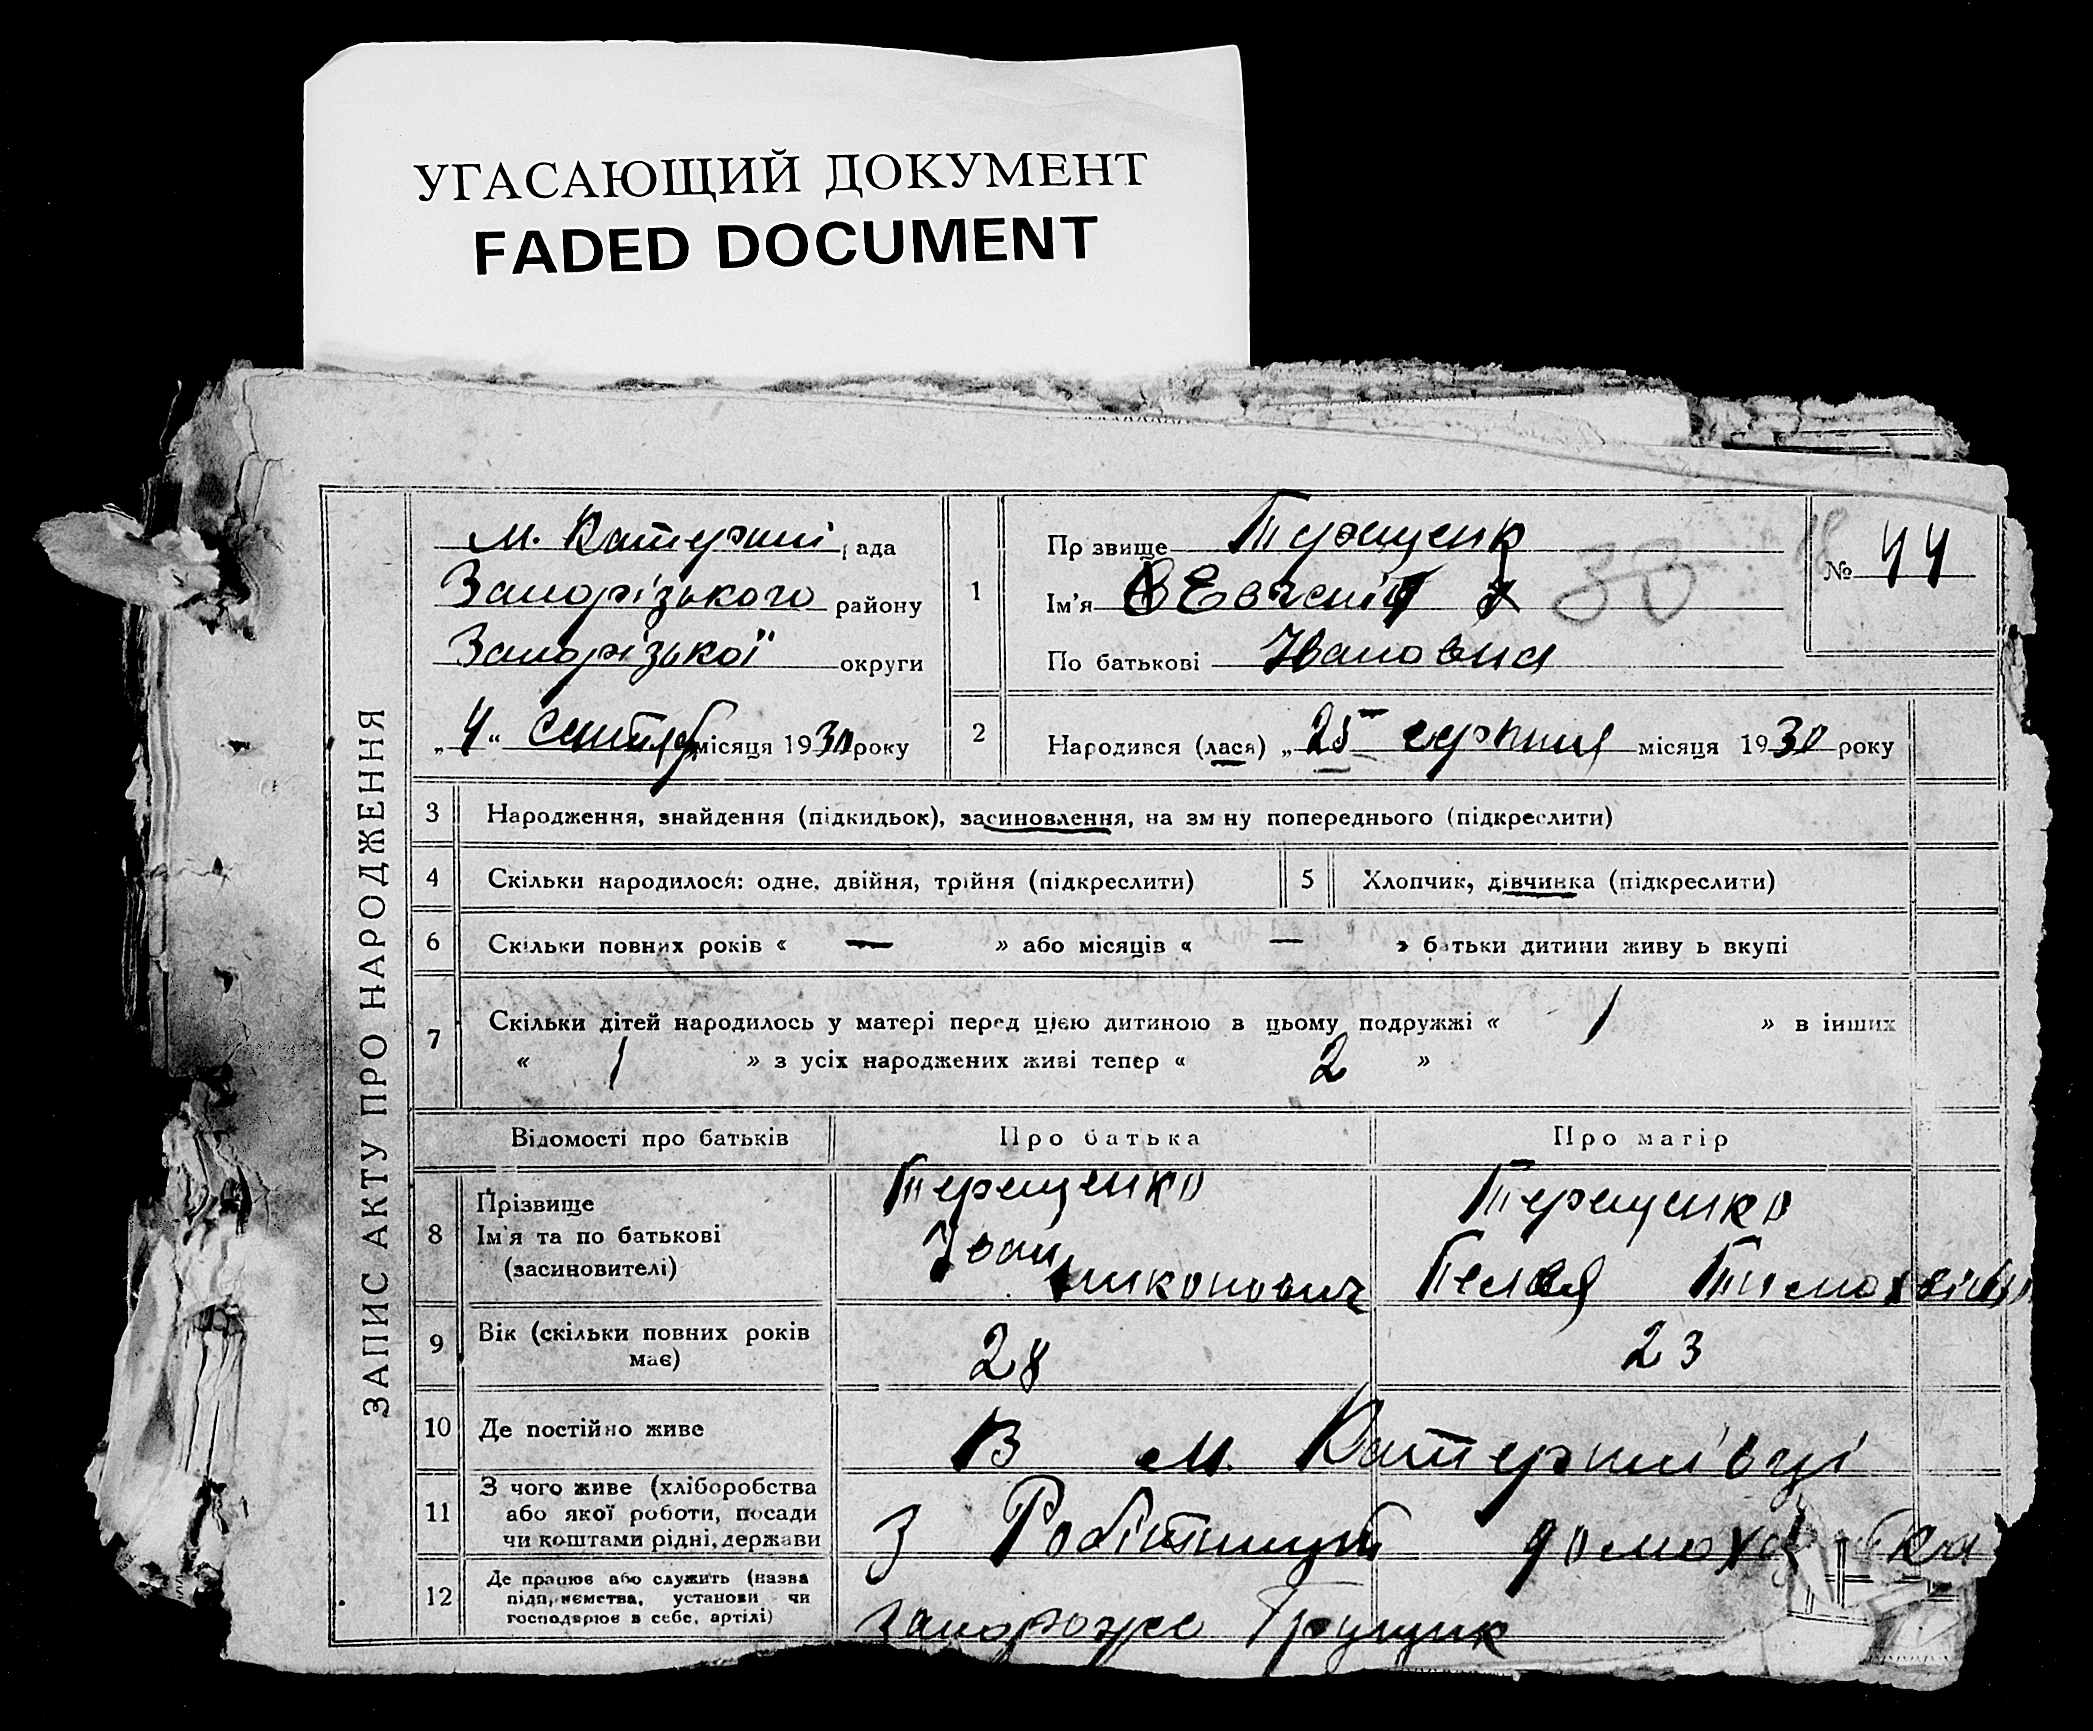 УГАСАЮЩИЙ ДОКУМЕНТ
FADED DOCUMENT
ЗАПИС АКТУ ПРО НАРОДЖЕННЯ
м. Катерині рада
Запорізького району
Запорізької округи
„4“ сентяб місяця 1930 року
1
Пр звище Терещенк
Ім'я Евгенія
По батькові Ивановна
30
№ 44
2
Народився (лася) „25 серпня місяця 1930 року
3 Народження, знайдення (підкидьок), засиновлення, на зм ну попереднього (підкреслити)
4 Скільки народилося: одне, двійня, трійня (підкреслити)
5 Хлопчик, дівчинка (підкреслити)
6 Скільки повних років « — » або місяців « — » батьки дитини живу ь вкупі
7 Скільки дітей народилось у матері перед цією дитиною в цьому подружжі « 1 » в інших
« 1 » з усіх народжених живі тепер « 2 »
Відомості про батьків Про батька Про матір
8 Прізвище
Ім'я та по батькові
(засиновителі)
Терещенко
Іван
Никонович
Терещенко
9 Вік (скільки повних років
має)
28
23
10 Де постійно живе
В м. Катеринівці
11 З чого живе (хліборобства
або якої роботи, посади
чи коштами рідні, держави
З
12 Де працює або служить (назва
підпр иємства, установи чи
господарює в себе, артілі)